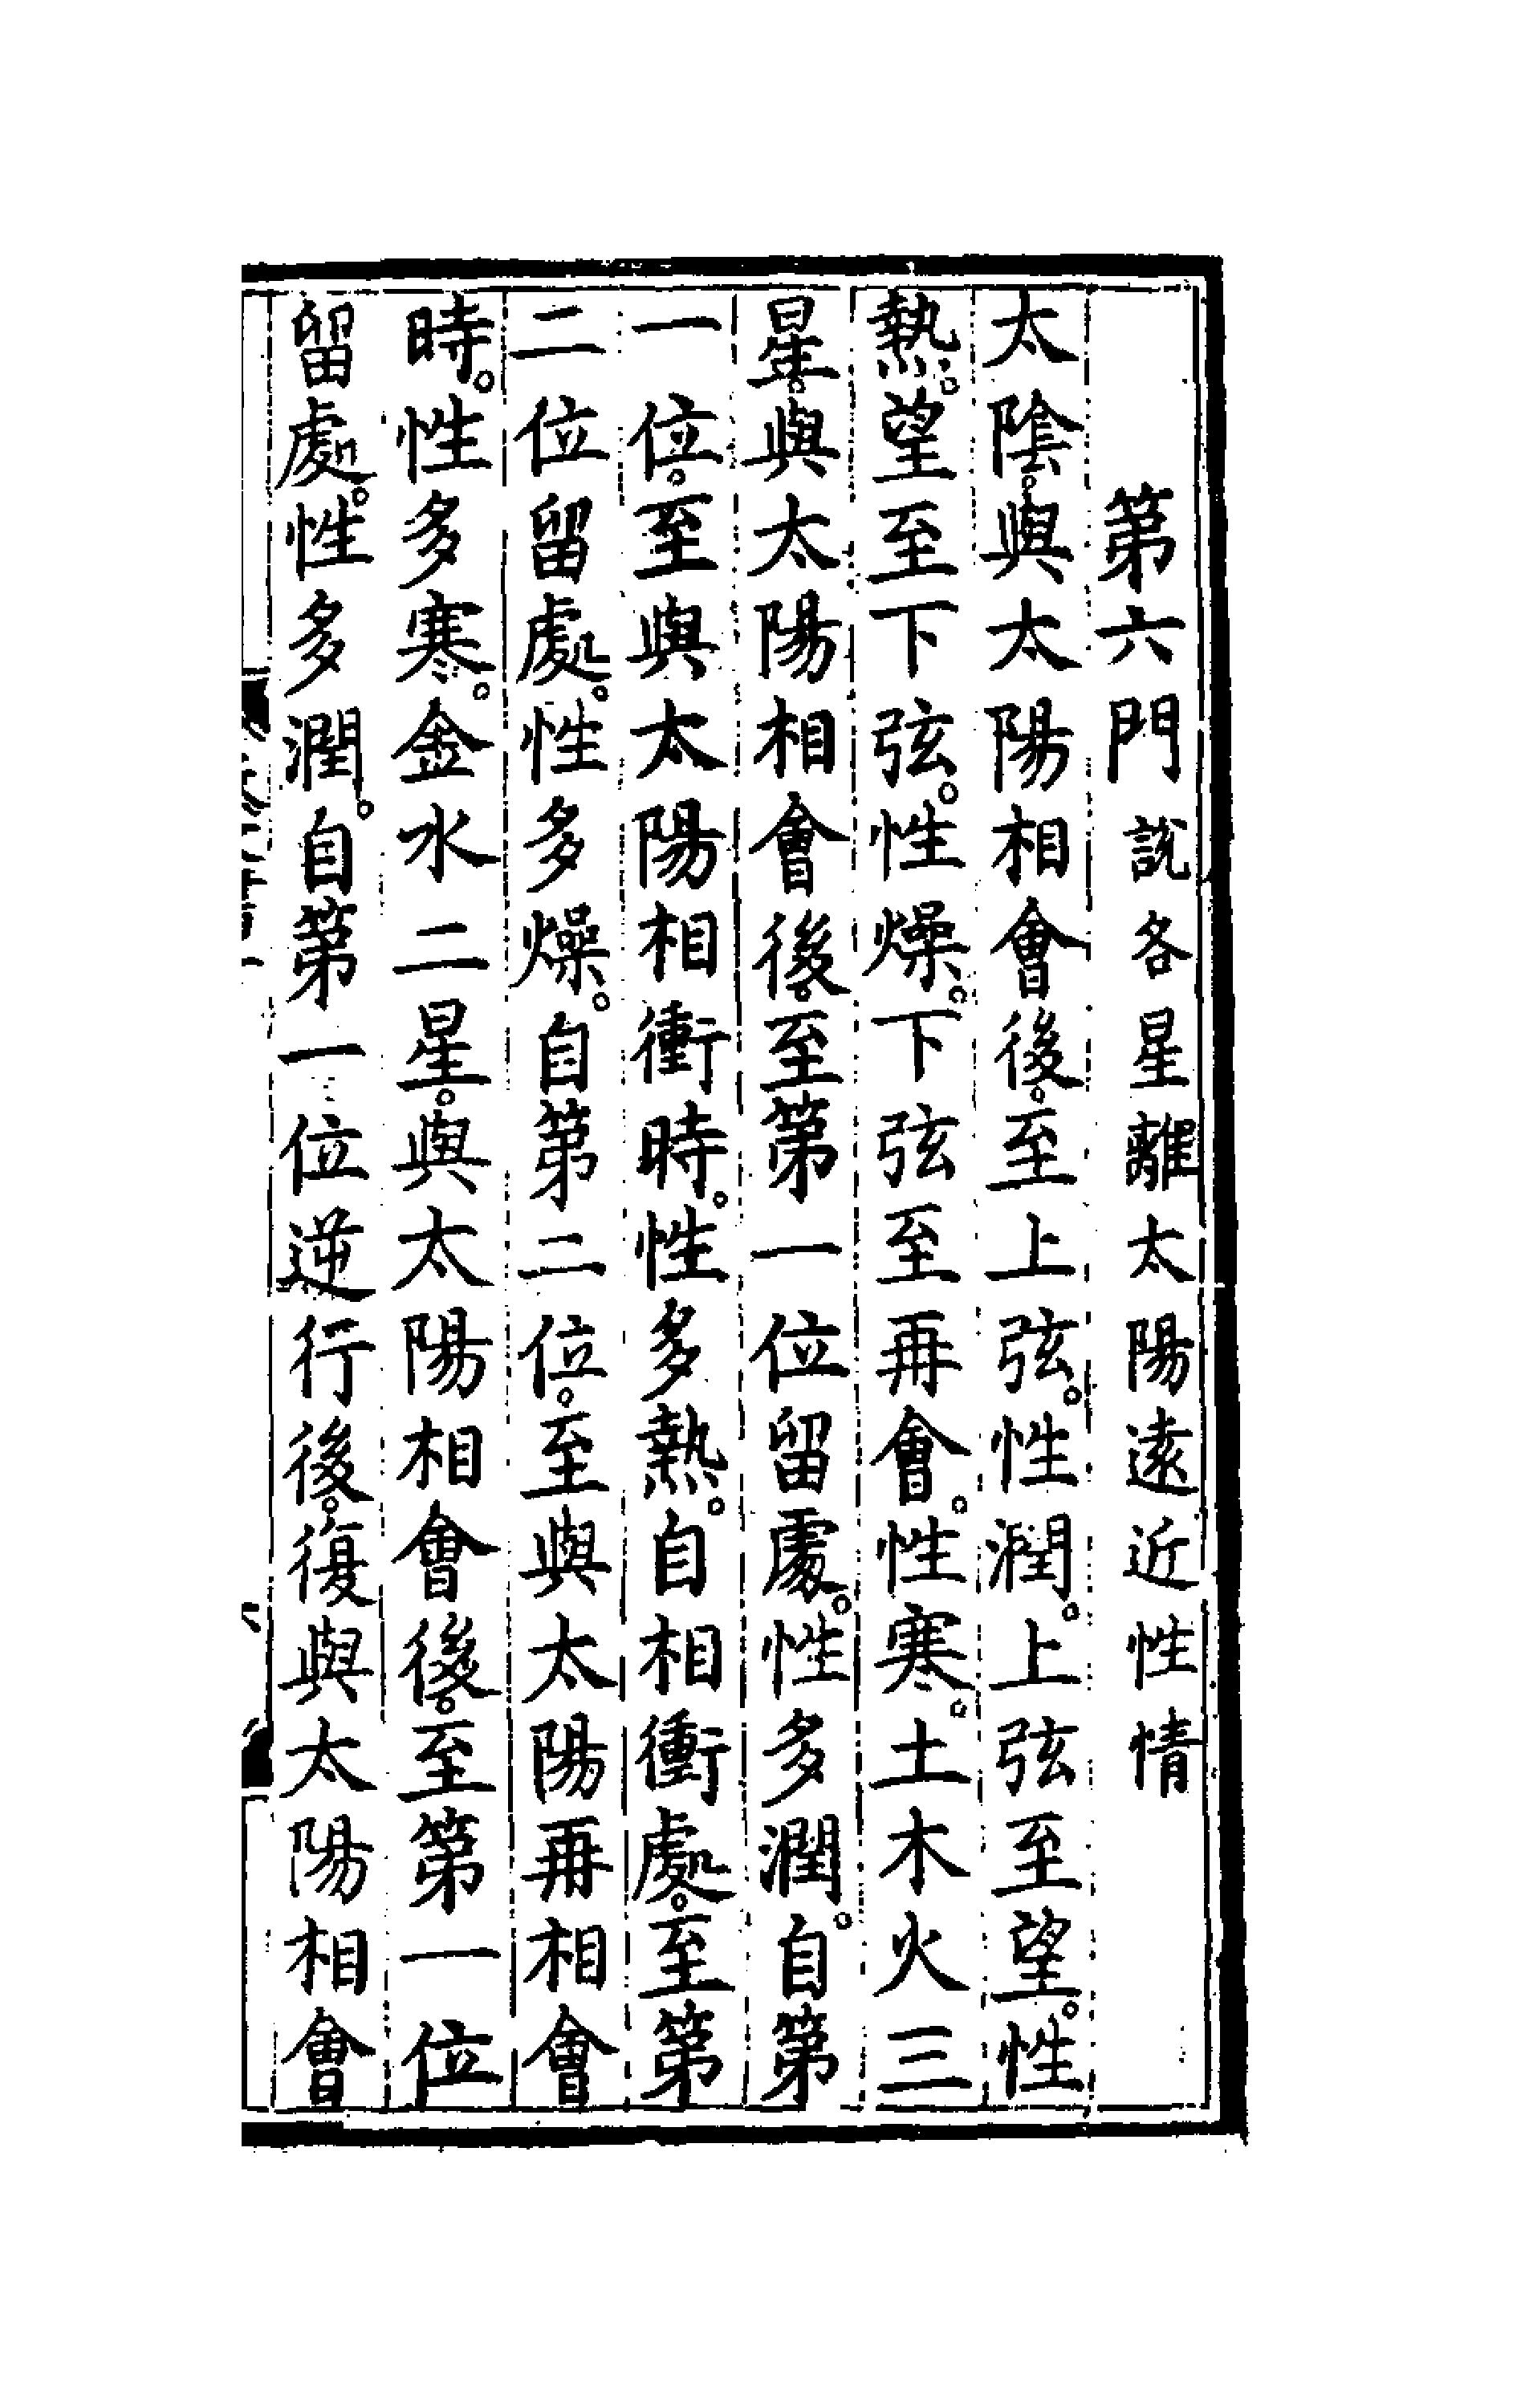 第六門說各星離太陽遠近性情
太陰。與太陽相會後。至上弦。性潤。上弦至望。性
熱。望至下弦。性燥。下弦至再會。性寒。土木火三
星。與太陽相會後。至第一位留處。性多潤。自第
一位。至與太陽相衝時。性多熱。自相衝處。至第
二位留處。性多燥。自第二位。至與太陽再相會
時。性多寒。金水二星。與太陽相會後。至第一位
留處。性多潤。自第一位逆行後。復與太陽相會